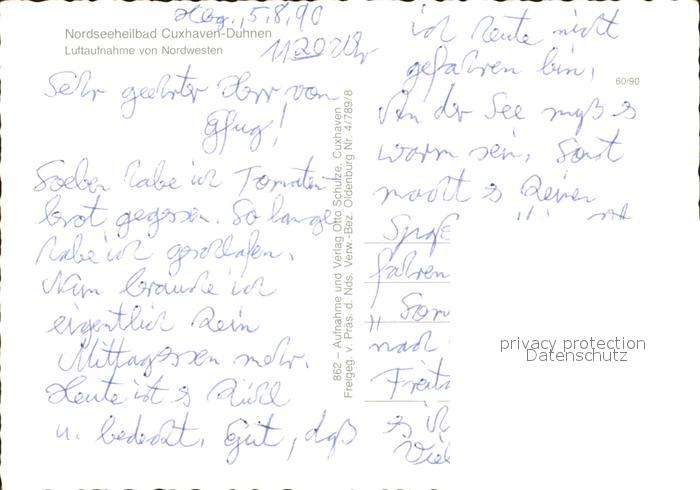 Hbg., 5.8.90
Nordseeheilbad Cuxhaven-Duhnen
Luftaufnahme von Nordwesten
11 20 Uhr
Sehr geehrter Herr von
Soeben habe ich Tomaten
brot gegessen. So lange
habe ich geschlafen.
Nun brauche ich
eigentlich kein
Mittagessen mehr.
Heute ist es kühl
u. bedeckt. Gut, daß
862 – Aufnahme und Verlag Otto Schulze, Cuxhaven
Freigeg. v. Präs. d. Nds. Verw.-Bez. Oldenburg Nr. 4/789/8
ich heute nicht
gefahren bin.
60/90
An der See muß es
warm sein, sonst
macht es keinen
Spaß
fahren
nach
es
privacy protection
Datenschutz